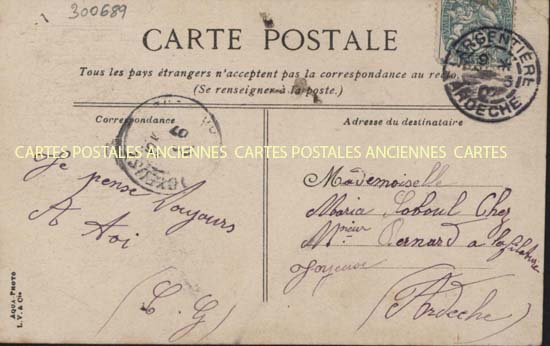 300689
CARTE POSTALE
Tous les pays étrangers n'acceptent pas la correspondance au recto.
(Se renseigner à la poste.)
ARGENTIÈRE
ARDÈCHE
Correspondance
Adresse du destinataire
JOYEUSE
07
CARTES POSTALES ANCIENNES CARTES POSTALES ANCIENNES CARTES
Je pense Toujours
A Toi
(L. G)
Mademoiselle
Maria Loboul Chez
Mr Bernard a la filature
Joyeuse
(Ardèche)
AQUA-PHOTO
L. V. & Cie